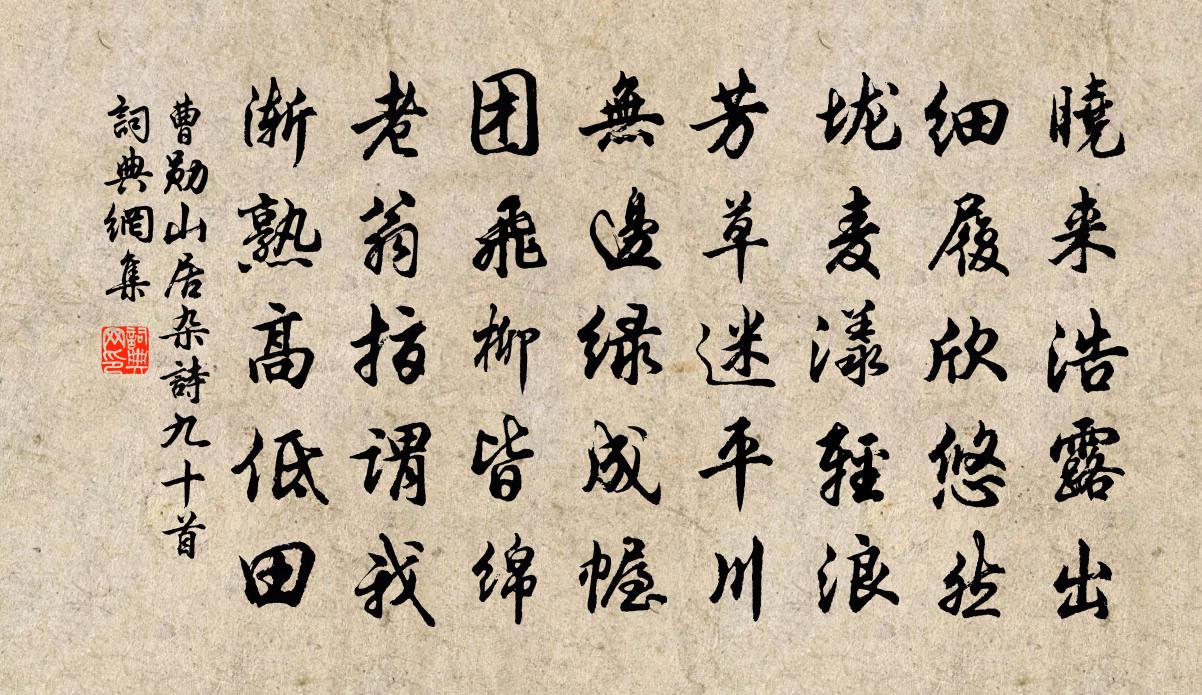 曉来浩露出
细履欣悠然
垅麦漾輕浪
芳草迷平川
無邊緑成幄
团飛柳皆綿
老翁指謂我
渐熟高低田
曹勛山居杂詩九十首
詞典網集
詞典网印